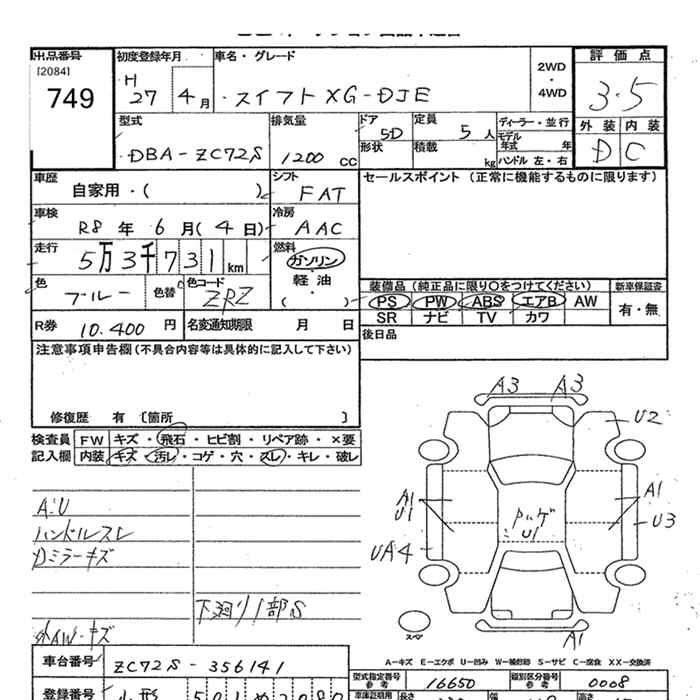 出品番号
[2084]
749
初度登録年月
H
27 4月
車名・グレード
スイフト XG-DJE
2WD
・
4WD
評価点
3.5
外装 内装
D C
型式
DBA-ZC72S
排気量
1200 cc
ドア
5D
形状
定員
5 人
積載
kg
ディーラー・並行
モデル年式 年
ハンドル 左・右
車歴
自家用・( )
シフト
FAT
セールスポイント (正常に機能するものに限ります)
車検
R8 年 6 月( 4 日)
冷房
AAC
走行
5万3千731 km
燃料
ガソリン
軽油
( )
色
ブルー
色替
色コード
ZRZ
装備品 (純正品に限り○をつけてください)
新車保証書
PS PW ABS エアB AW
SR ナビ TV カワ
有・無
R券 10.400 円
名変通知期限 月 日
後日品
注意事項申告欄(不具合内容等は具体的に記入して下さい)
修復歴 有 〔箇所 〕
検査員記入欄
FW キズ・飛石・ヒビ割・リペア跡・×要
内装 キズ・汚レ・コゲ・穴・スレ・キレ・破レ
A3 A3
U2
A1
U1
A1
U3
ハゲ
U1
UA4
A1
スペア
A:U
ハンドルスレ
Dミラーキズ
下廻り1部S
外AW・キズ
A-キズ E-エクボ U-凹み W-補修跡 S-サビ C-腐食 XX-交換済
車台番号 ZC72S-356141
型式指定番号参考 16650
類別区分番号参考 0008
登録番号
山形 501
車庫証明用参考
長さ